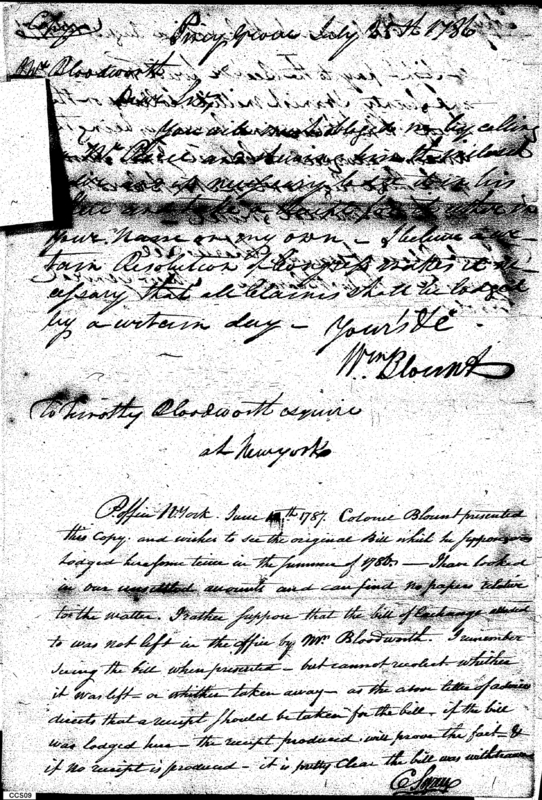 (Copy)
Piney Grove July 25th 1786
Mr. Bloodworth
Dear Sir,
You will much oblige me by calling
on Mr. Pierce and shewing him the inclosed
necessary to let it in his
and take a for it either in
your Name or my own – I believe a cer-
tain Resolution of Congress makes it ne-
cessary that all Claims shall be lodged
by a certain day – Your's &c
Wm Blount
To Timothy Bloodworth esquire
at New york
P. Office N. York. June th 1787. Colonel Blount presented
this Copy. and wishes to see the original Bill which he supposes was
lodged here some time in the summer of 1786 – I have looked
in our unsettled accounts and can find no papers relative
to the matter. I rather suppose that the bill of Exchange alluded
to was not left in the office by Mr. Bloodworth. I remember
seeing the bill when presented – but cannot recolect whether
it was left – or whether taken away – as the above letter of advice
directs that a receipt should be taken for the bill, if the bill
was lodged here – the receipt produced will prove the fact – &
if no receipt is produced – it is pretty Clear the bill was withdrawn
C Swan
CCS09